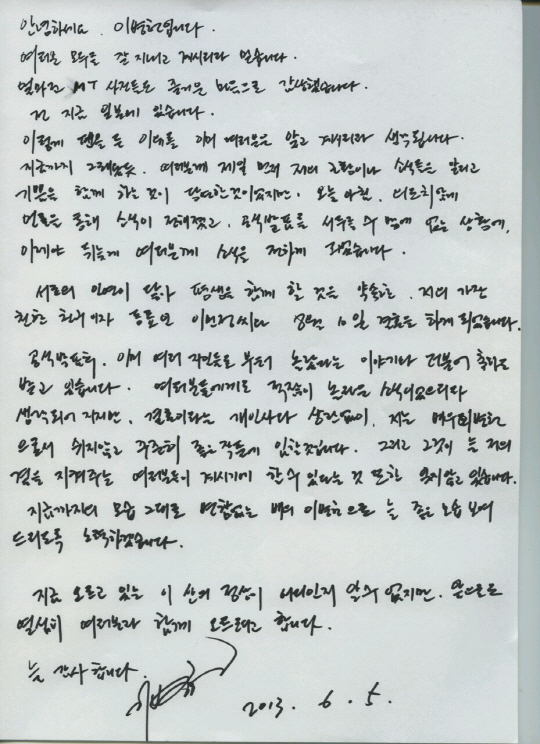 안녕하세요. 이병헌입니다.
여러분 모두들 잘 지내고 계시리라 믿습니다.
얼마전 MT 사진들도 즐거운 마음으로 감상했습니다.
전 지금 일본에 있습니다.
이렇게 펜을 든 이유를 이미 여러분은 알고 계시리라 생각됩니다.
지금까지 그래왔듯, 여러분께 제일 먼저 저의 근황이나 소식들을 알리고
기쁨을 함께 하는것이 당연한것이었지만, 오늘 아침, 의도치않게
언론을 통해 소식이 전해졌고, 공식발표를 서두를 수 밖에 없는 상황에,
이제야 뒤늦게 여러분께 소식을 전하게 되었습니다.
서로의 인연이 닿아 평생을 함께 할 것을 약속한, 저의 가장
친한 친구이자 동료인 이민정씨와 8월 10일 결혼을 하게 되었습니다.
공식발표후, 이미 여러 지인들로 부터 놀랐다는 이야기와 더불어 축하를
받고 있습니다. 여러분들에게도 적잖이 놀라운 소식이었으리라
생각되어 지지만, 결혼이라는 개인사와 상관없이, 저는 배우 이병헌
으로서 쉬지않고 꾸준히 좋은 작품에 임할것입니다. 그리고 그것이 늘 저의
곁을 지켜주는 여러분들이 계시기에 할 수 있다는 것 또한 잊지않고 있습니다.
지금까지의 모습 그대로 변함없는 배우 이병헌으로 늘 좋은 모습 보여
드리도록 노력하겠습니다.
지금 오르고 있는 이 산의 정상이 어디인지 알수 없지만, 앞으로도
열심히 여러분과 함께 오르려고 합니다.
늘 감사합니다.
2013. 6. 5.